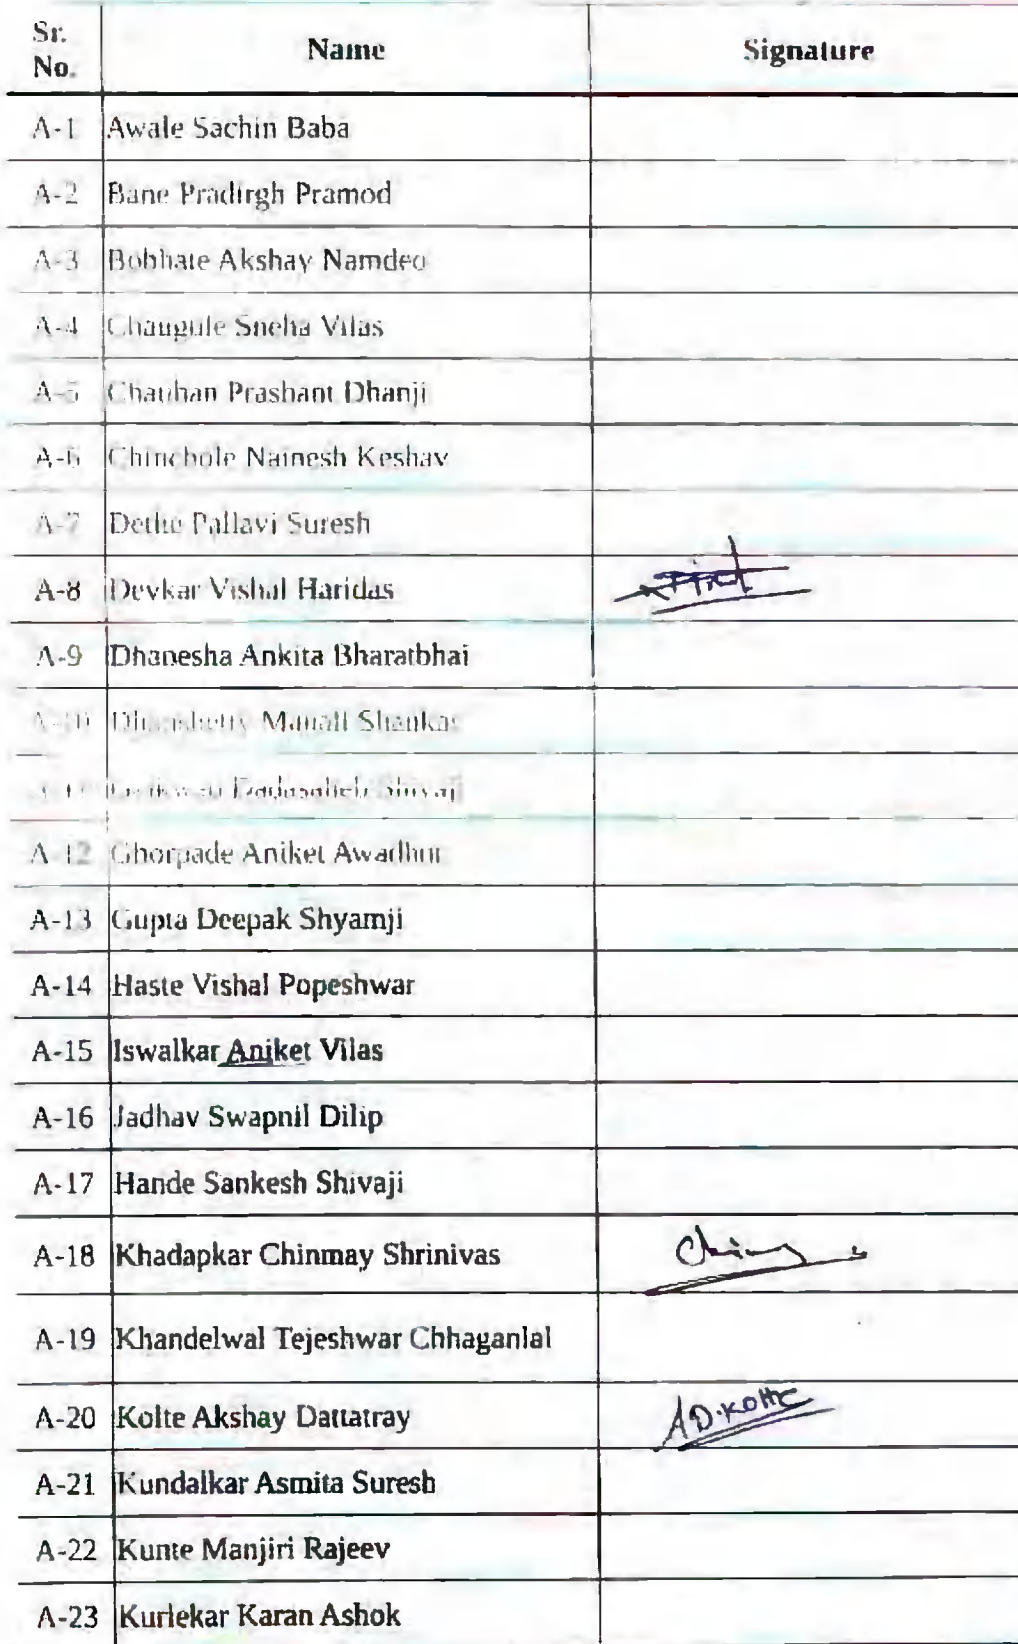 Sr. No. Name Signature
A-1 Awale Sachin Baba
A-2 Bane Pradirgh Pramod
A-3 Bobhate Akshay Namdeo
A-4 Chaugule Sneha Vilas
A-5 Chauhan Prashant Dhanji
A-6 Chinchole Nainesh Keshav
A-7 Dethe Pallavi Suresh
A-8 Devkar Vishal Haridas
A-9 Dhanesha Ankita Bharatbhai
A-10 Manali Shankar
Dadasaheb Shivaji
A-12 Ghorpade Aniket Awadhut
A-13 Gupta Deepak Shyamji
A-14 Haste Vishal Popeshwar
A-15 Iswalkar Aniket Vilas
A-16 Jadhav Swapnil Dilip
A-17 Hande Sankesh Shivaji
A-18 Khadapkar Chinmay Shrinivas
A-19 Khandelwal Tejeshwar Chhaganlal
A-20 Kolte Akshay Dattatray A.D.Kolte
A-21 Kundalkar Asmita Suresh
A-22 Kunte Manjiri Rajeev
A-23 Kurlekar Karan Ashok